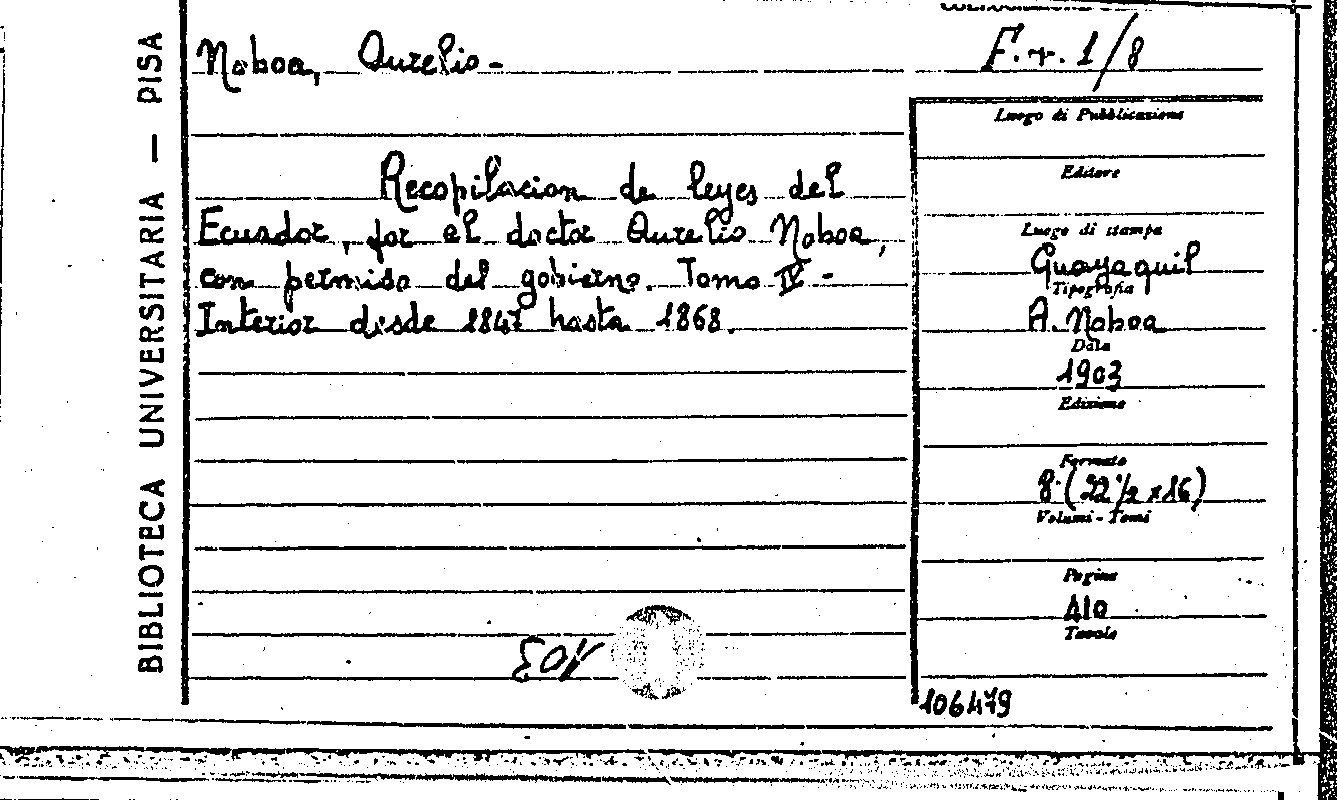 BIBLIOTECA UNIVERSITARIA — PISA
Noboa, Aurelio -
F. r. 1/8
Recopilacion de leyes del
Ecuador, por el doctor Aurelio Noboa,
con permiso del gobierno. Tomo IV -
Interior disde 1847 hasta 1868.
Luogo di Pubblicazione
Editore
Luogo di stampa
Guayaquil
Tipografia
A. Noboa
Data
1903
Edizione
Formato
8° (22 1/2 x 16)
Volumi - Tomi
Pagine
410
Tavole
106479